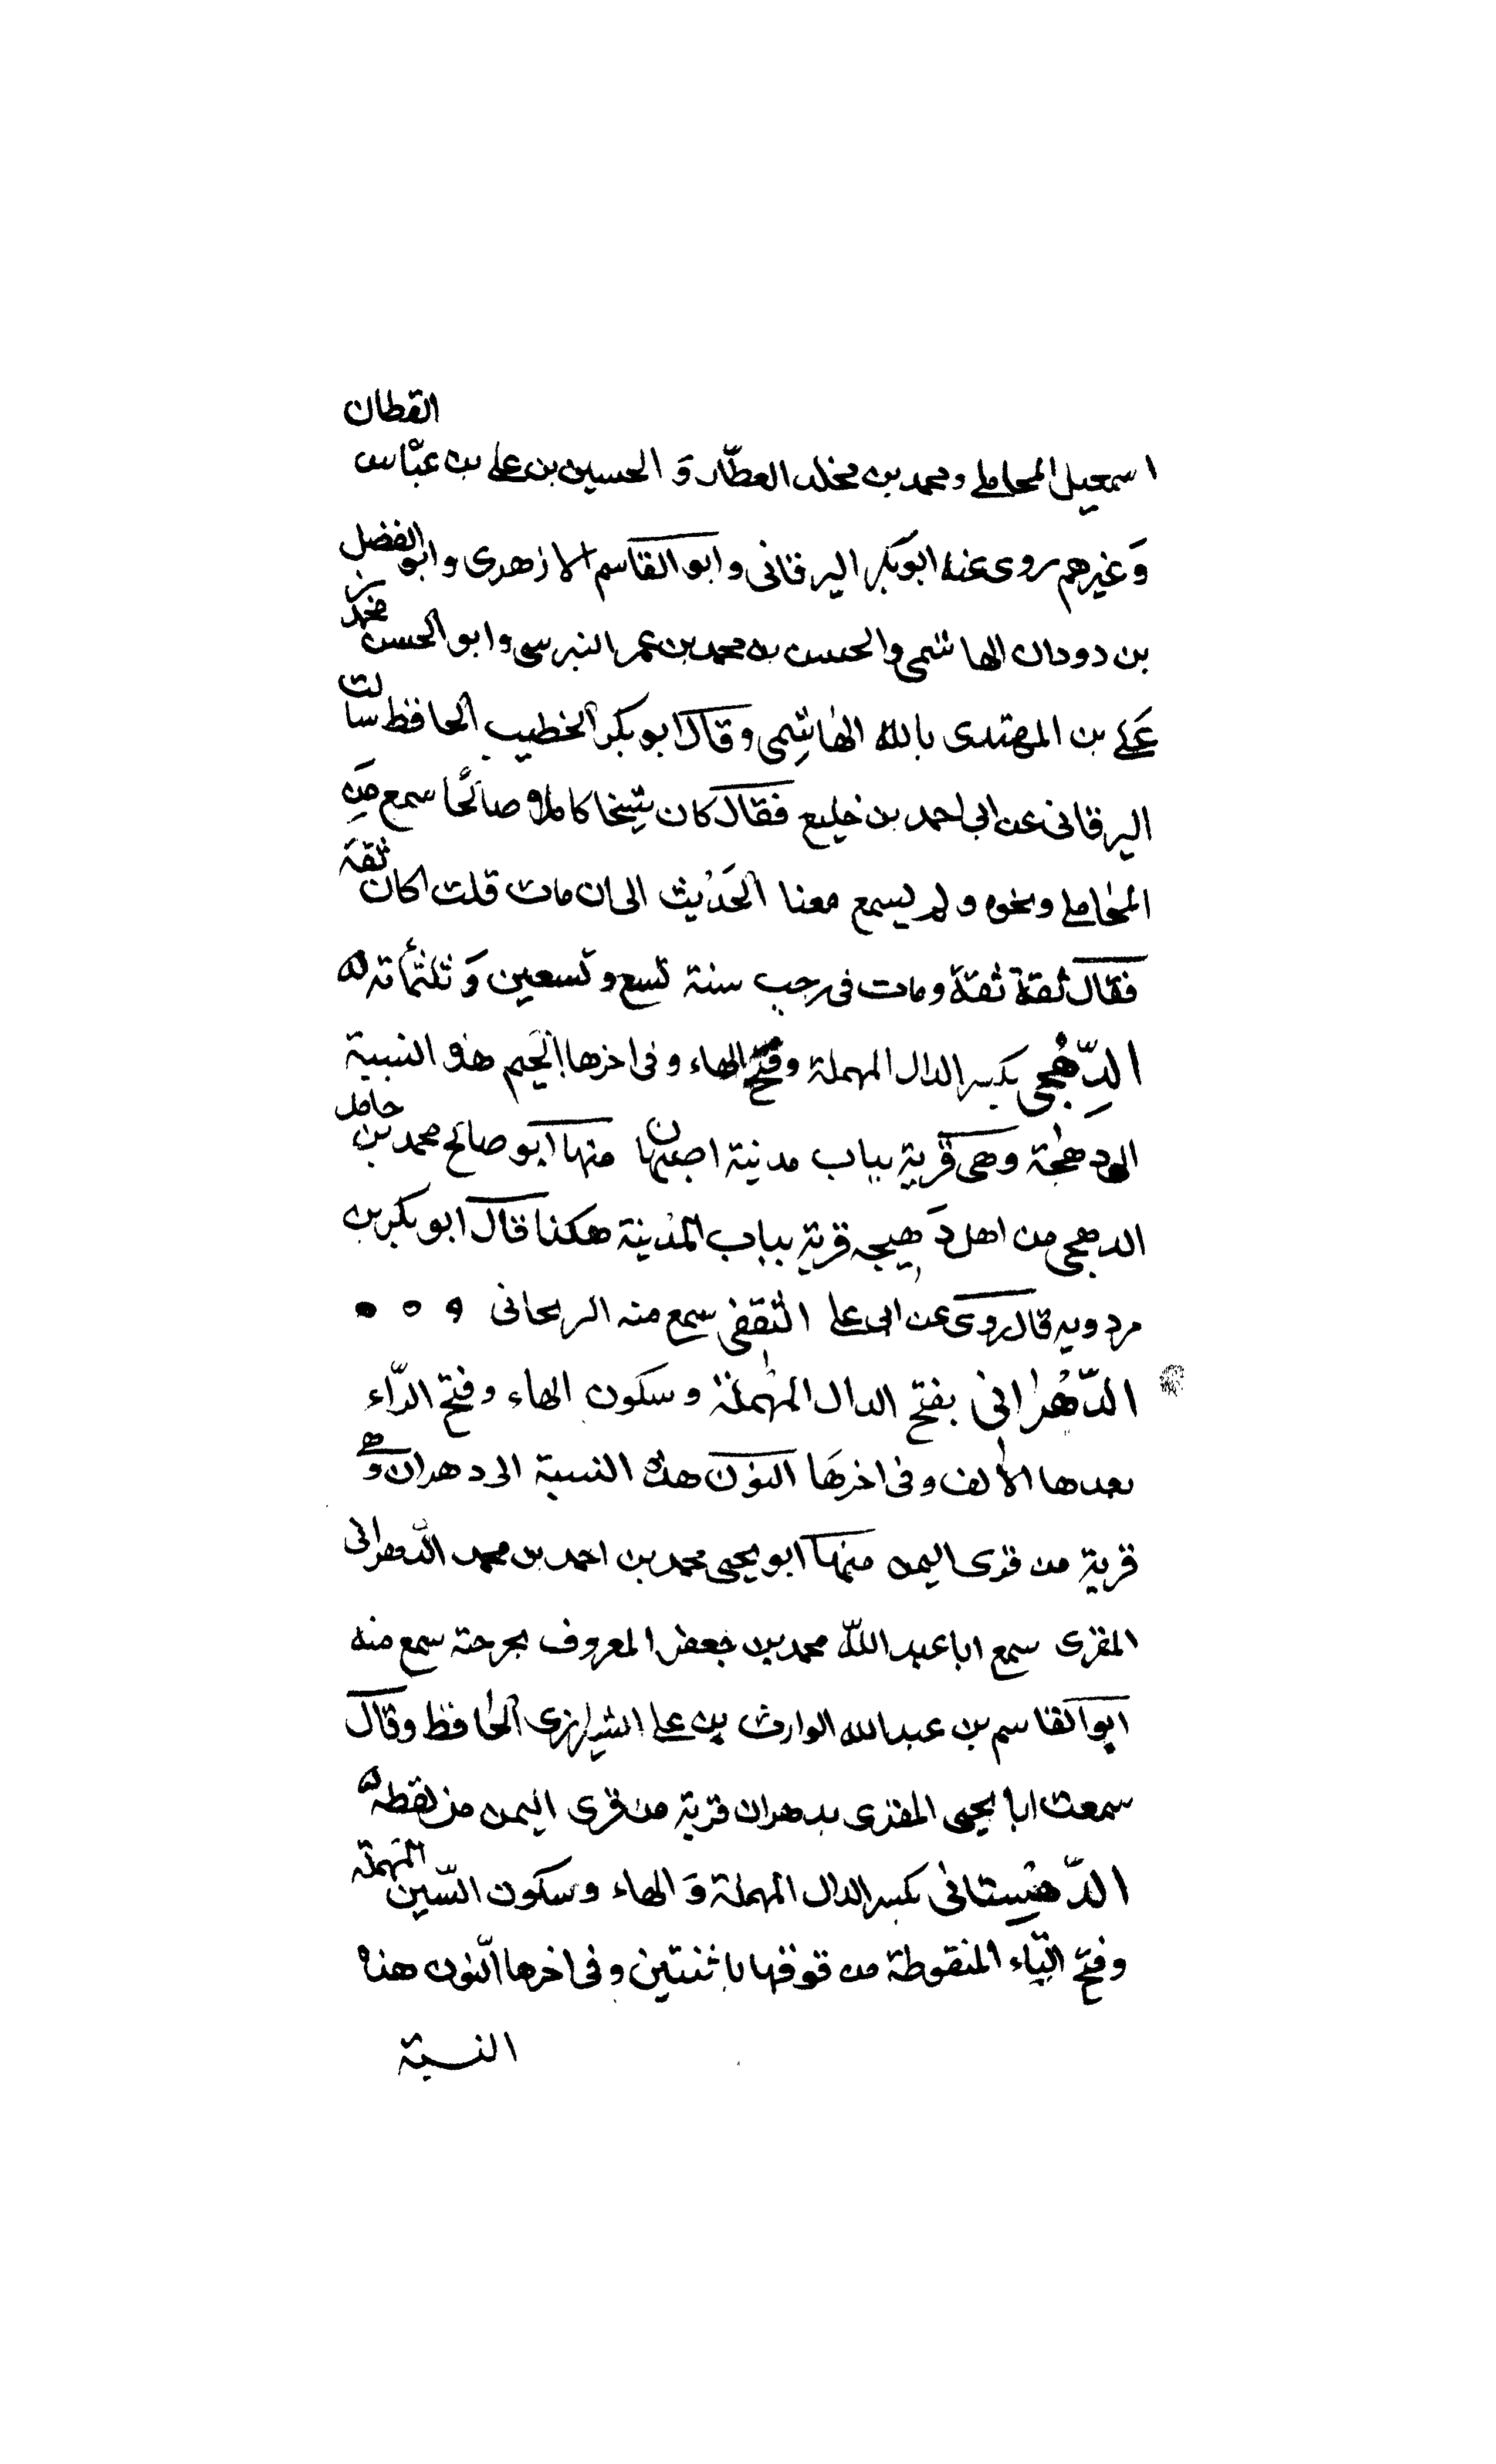 اسمعيل المحاملي ومحمد بن مخلد العطّار وَ الحسين بن علي بن عبّاس القطان
وَغيرهم روى عنه ابو بكر البرقانى وابو القاسم الازهرى وابو الفضل
بن دودان الهاشمى والحسن بن محمد بن عمر النرسى وابو الحسن محمد بن
عَلي بن المهتدى بالله الهاشِمى وقال ابو بكر الخطيب الحافظ سالت
البرقانى عن ابى احمد بن خليع فقال كان شيخا كاملا صالحًا سمع مَن
المحاملي ونحوه ولم يسمع معنا الحَديث الى ان مات قلت اكان ثقة
فقال ثقة ثقة ومات فى رجب سنة تسع وتسعين وَثلثمأته
الدِّهْجى بكسر الدال المهملة وفتح الهاء وفى اخرها الجيم هذه النسبة
الى دهجة وهى قرية بباب مدينة اصبهان منها ابو صالح محمد بن حامد
الدهجى من اهل دَهيجه قرية بباب المدينة هكذا قال ابو بكر بن
مردويه قال روى عن ابى على الثقفى سمع منه الريحانى
الدّهْرانى بفتح الدال المهملة وسكون الهاء وفتح الرّاء
بعدها الألف وفى اخرهَا النون هذه النسبة الى دهران وَهى
قرية من قرى اليمن منها ابو يحيى محمد بن احمد بن محمد الدّهرانى
المقرى سمع ابا عبد اللّه محمد بن جعفر المعروف بجرحة سمع منه
ابو القاسم بن عبد الله الوارث بن على الشيرازى الحافظ وقال
سمعت ابا يحيى المقرى بدهران قرية من قرى اليمن من لفظه
الدّهِسْتانى بكسر الدال المهملة وَالهاء وسكون السّين المهملة
وفتح التّاء المنقوطة من فوقها باثنتين وفى اخرها النّون هذه
النسبة